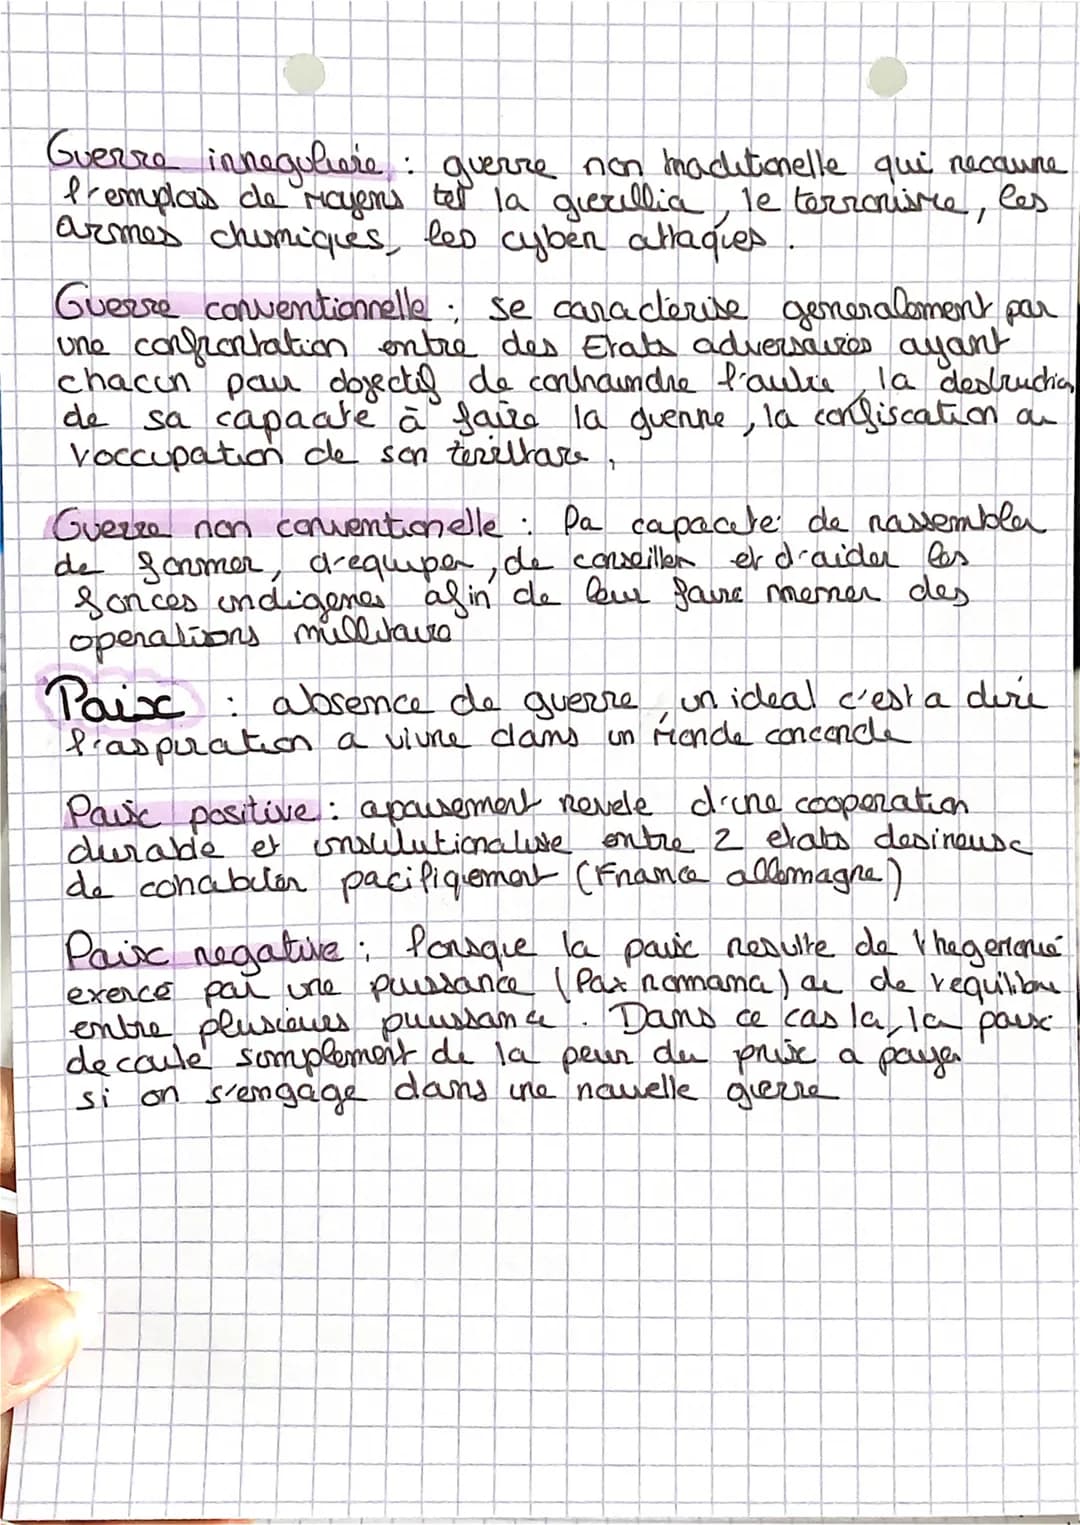 Guerre irreguliere : guerre non traditionelle qui recourre
l'emplois de moyens tel la guerillia, le terrorisme, les
armes chimiques, les cyber attaques.
Guerre conventionnelle : se caractérise generalement par
une confrontation entre des Etats adversaires ayant
chacun pour objectif de contraindre l'autre, la destruction
de sa capacité à faire la guerre, la confiscation ou
l'occupation de son territoire,
Guerre non conventionelle : la capacité de rassembler
de former, d'equiper, de conseiller et d'aider les
forces indigenes afin de leur faire mener des
operations millitaire
Paix : absence de guerre, un ideal c'est a dire
l'aspiration a vivre dans un monde concorde
Paix positive : apaisement revele d'une cooperation
durable et institutionalise entre 2 etats desireuse
de cohabiter pacifiquement (France allemagne)
Paix negative : lorsque la paix resulte de l'hegemonie
exercé par une puissance (Pax romana) ou de l'equilibre
entre plusieurs puissance. Dans ce cas la, la paix
decoule simplement de la peur du prix a payer
si on s'engage dans une nouvelle guerre